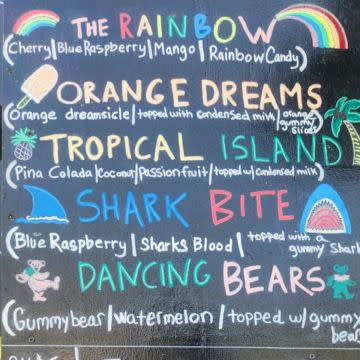 THE RAINBOW
(Cherry/Blue Raspberry/Mango/Rainbow Candy)
ORANGE DREAMS
(Orange dreamsicle/topped with condensed milk/orange gummy slices)
TROPICAL ISLAND
(Pina Colada/Coconut/Passionfruit/topped w/condensed milk)
SHARK BITE
(Blue Raspberry/Sharks Blood/topped with a gummy Shark
DANCING BEARS
(Gummybear/watermelon/topped w/gummy bear